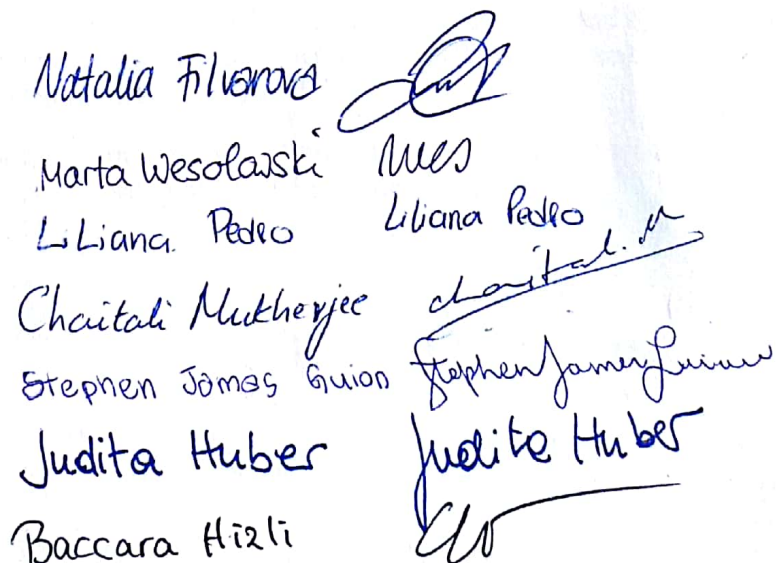 Natalia Filvarova
Marta Wesolawski Wes
Liliana Pedro Liliana Pedro
Chaitali Mukherjee chaitali.M
Stephen James Guion Stephen James Guion
Judita Huber Judita Huber
Baccara Hizli